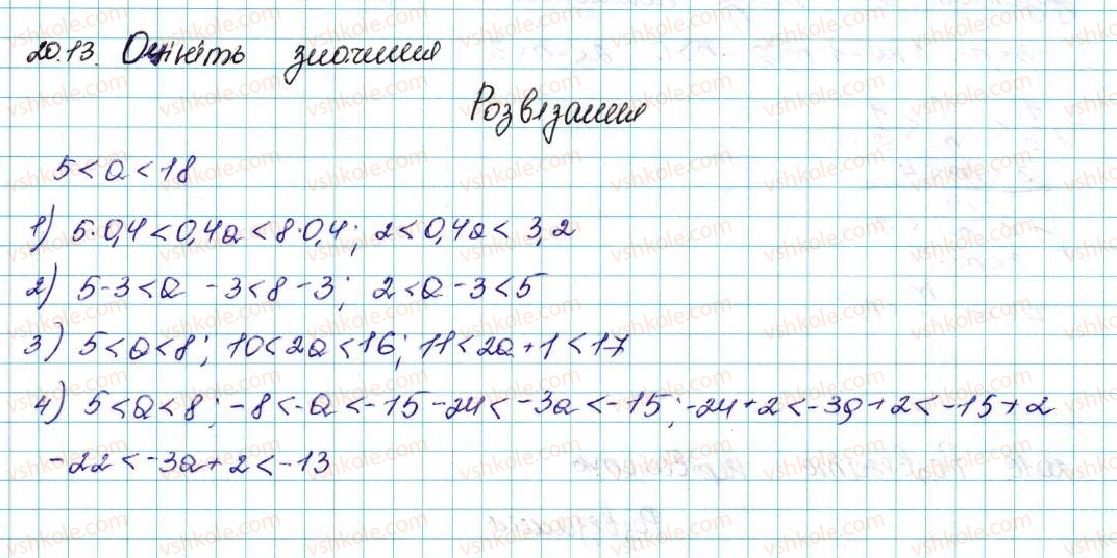 20.13. Оцініть значення
Розвязання
5 < a < 18
1) 5·0,4 < 0,4a < 8·0,4; 2 < 0,4a < 3,2
2) 5-3 < a - 3 < 8 - 3; 2 < a - 3 < 5
3) 5 < a < 8; 10 < 2a < 16; 11 < 2a + 1 < 17
4) 5 < a < 8; -8 < -a < -15 -24 < -3a < -15; -24 + 2 < -3a + 2 < -15 + 2
-22 < -3a + 2 < -13